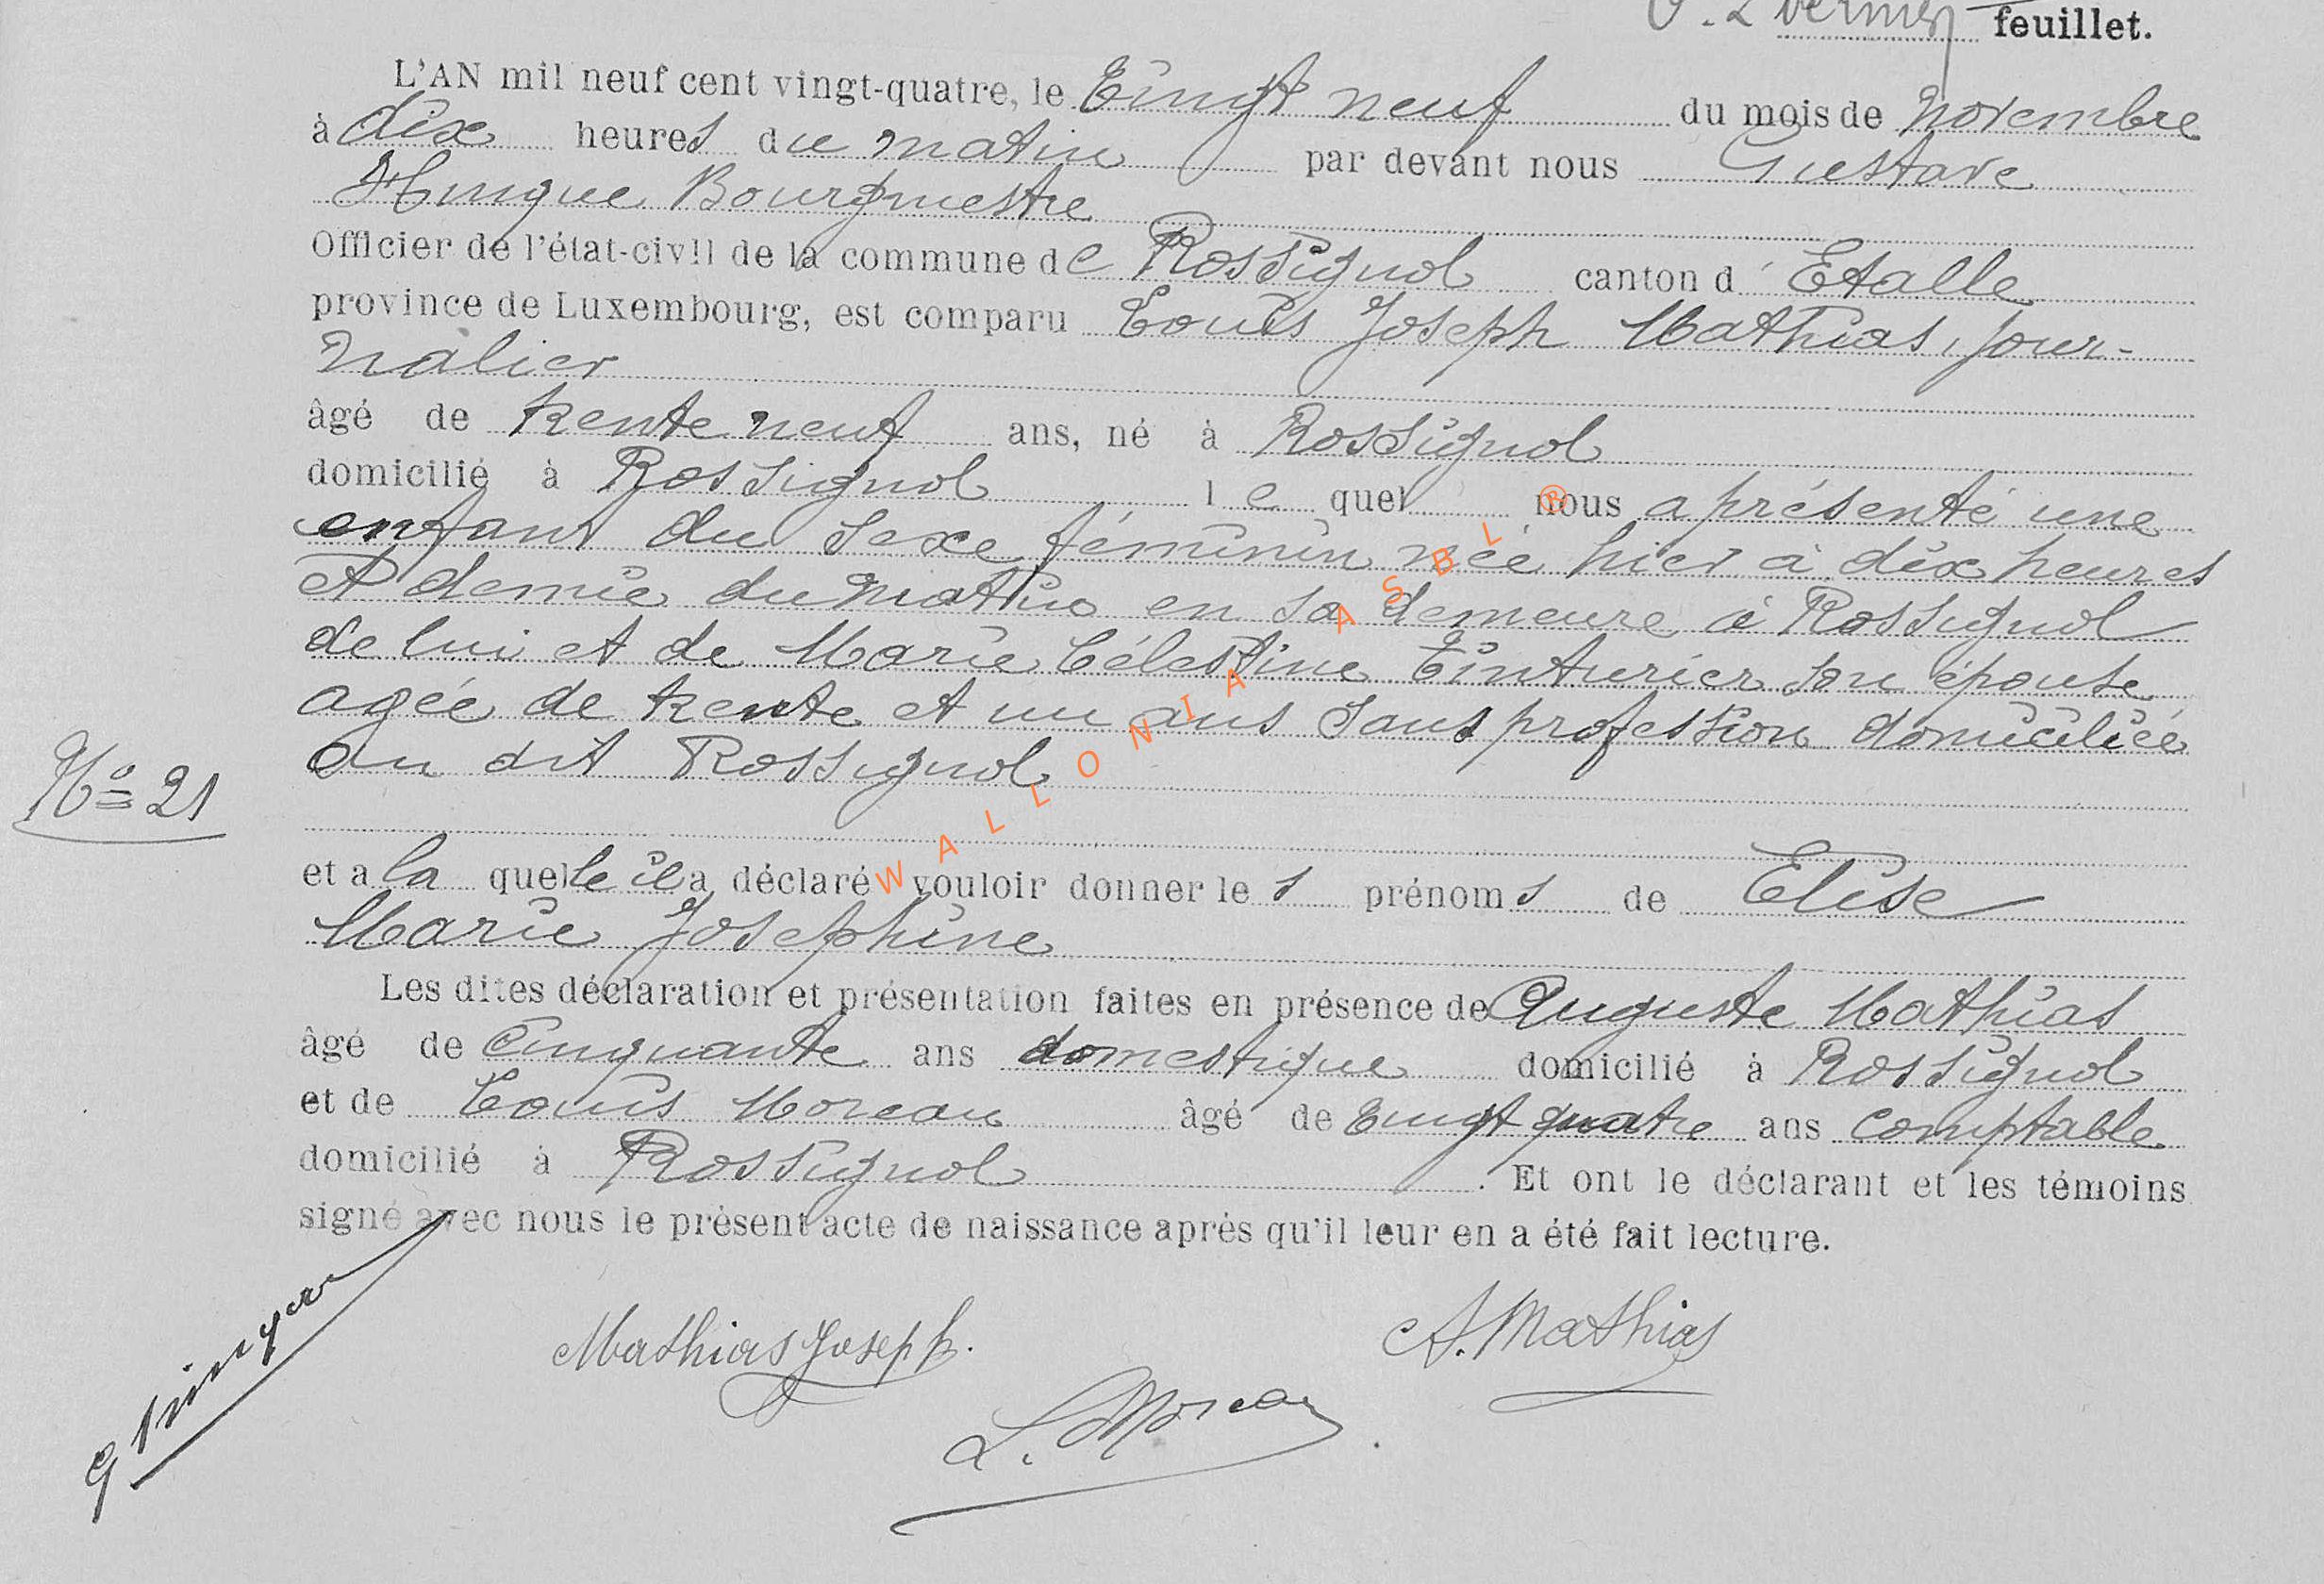 feuillet.
L'AN mil neuf cent vingt-quatre, le Vingt neuf du mois de Novembre
à dix heures du matin par devant nous Gustave
Hinque Bourgmestre
Officier de l'état-civil de la commune de Rossignol canton d'Etalle
province de Luxembourg, est comparu Louis Joseph Mathias, jour-
nalier
âgé de trente neuf ans, né à Rossignol
domicilié à Rossignol lequel nous a présenté une
enfant du sexe féminin née hier à dix heures
et demie du matin en sa demeure à Rossignol
de lui et de Marie Célestine Tinturier son épouse
agée de trente et un ans sans profession domiciliée
au dit Rossignol
N° 21
et a la quelle il a déclaré vouloir donner les prénoms de Elise
Marie Joséphine
Les dites déclaration et présentation faites en présence de Auguste Mathias
âgé de Cinquante ans domestique domicilié à Rossignol
et de Louis Moreau âgé de Vingt quatre ans comptable
domicilié à Rossignol. Et ont le déclarant et les témoins
signé avec nous le présent acte de naissance après qu'il leur en a été fait lecture.
Mathias Joseph.
A. Mathias
L. Moreau
WALLONIA ASBL ®